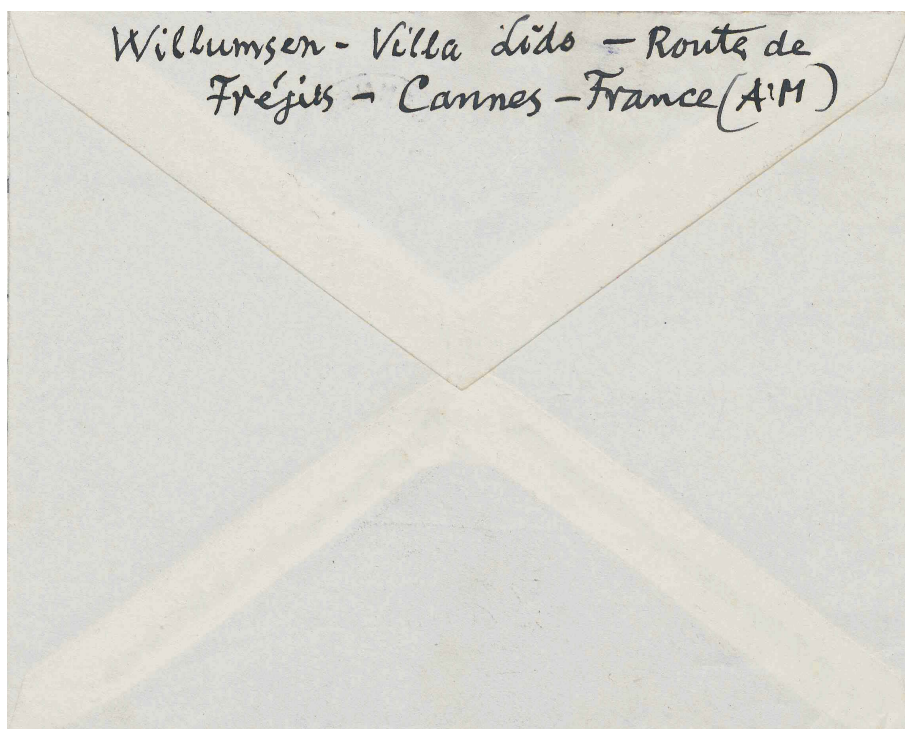 Willumsen - Villa Lido - Route de
Fréjus - Cannes - France (A.M)